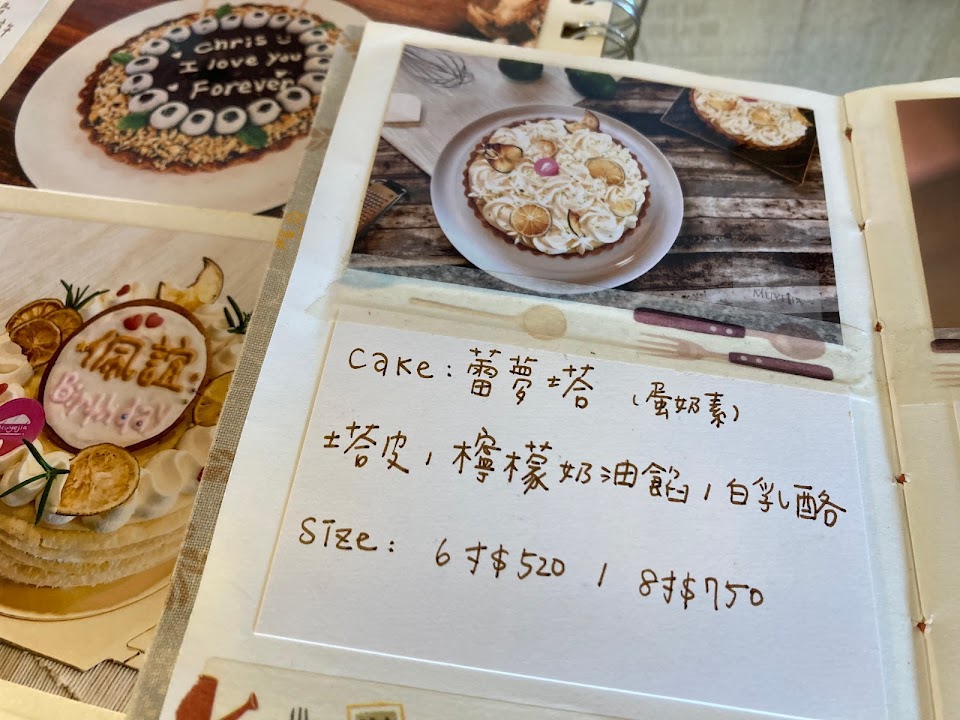 Chris
I love you
Forever
佩誼
Birthday
Cake: 蕾夢塔 (蛋奶素)
塔皮/檸檬奶油餡/白乳酪
Size: 6寸$520 / 8寸$750